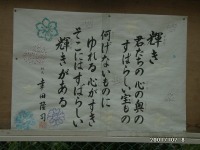 輝き
君たちの心の奥の
すばらしい宝もの
何げないものに
ゆれる心がすき
そこにはすばらしい
輝きがある
幸田隆司